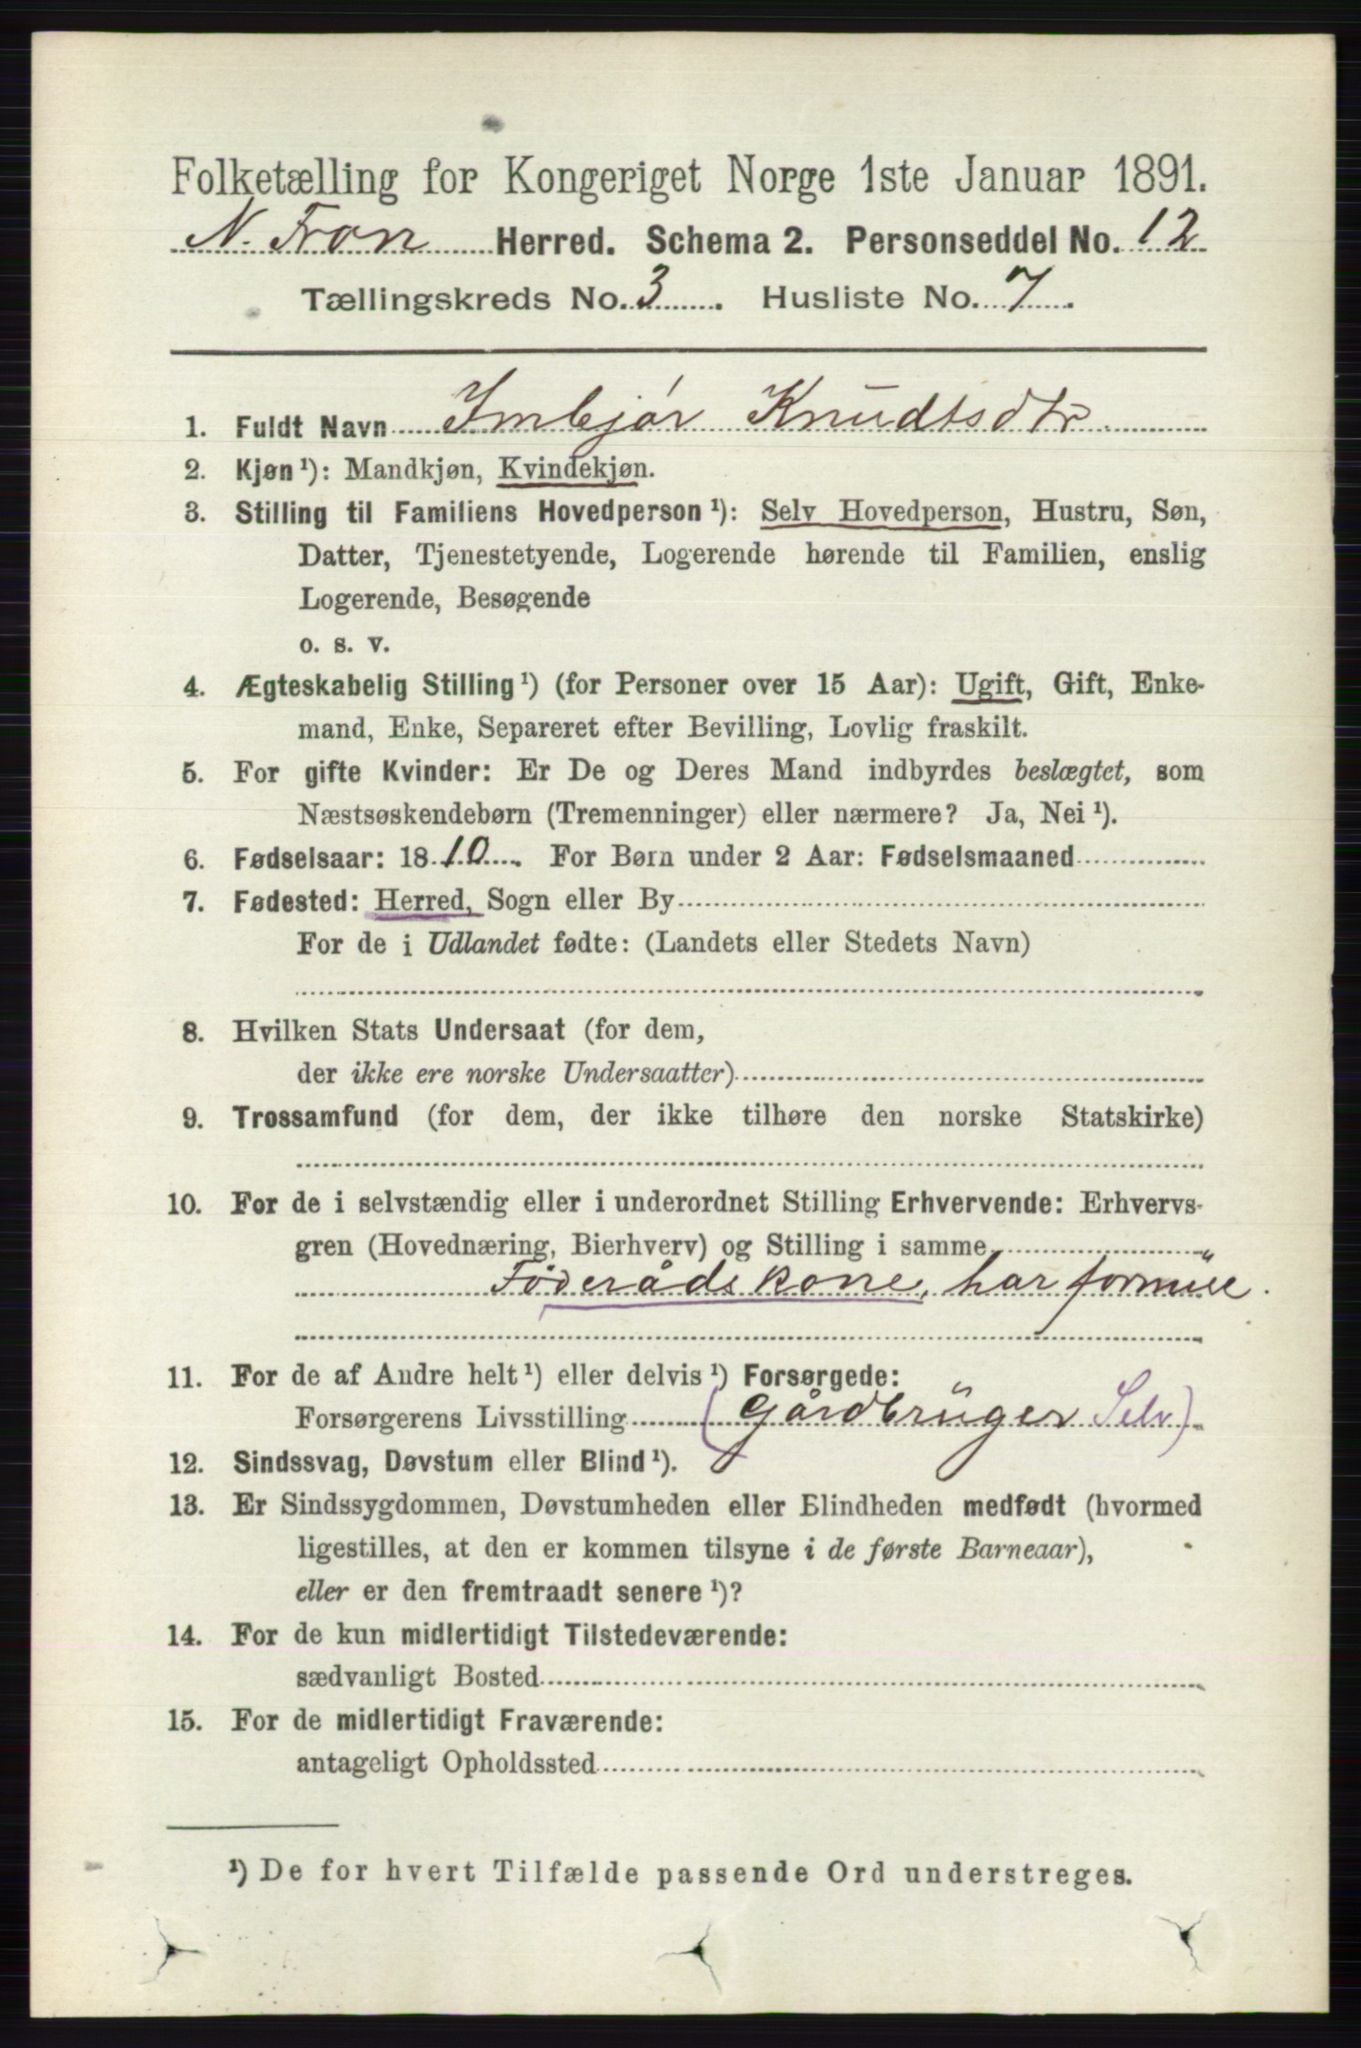 Folketælling for Kongeriget Norge 1ste Januar 1891.
N. Fron Herred. Schema 2. Personseddel No. 12
Tællingskreds No. 3. Husliste No. 7.
1. Fuldt Navn Imbjør Knudtsdtr.
2. Kjøn ¹): Mandkjøn, Kvindekjøn.
3. Stilling til Familiens Hovedperson ¹): Selv Hovedperson, Hustru, Søn,
Datter, Tjenestetyende, Logerende hørende til Familien, enslig
Logerende, Besøgende
o. s. v.
4. Ægteskabelig Stilling ¹) (for Personer over 15 Aar): Ugift, Gift, Enke-
mand, Enke, Separeret efter Bevilling, Lovlig fraskilt.
5. For gifte Kvinder: Er De og Deres Mand indbyrdes beslægtet, som
Næstsøskendebørn (Tremenninger) eller nærmere? Ja, Nei ¹).
6. Fødselsaar: 1810. For Børn under 2 Aar: Fødselsmaaned
7. Fødested: Herred, Sogn eller By
For de i Udlandet fødte: (Landets eller Stedets Navn)
8. Hvilken Stats Undersaat (for dem,
der ikke ere norske Undersaatter)
9. Trossamfund (for dem, der ikke tilhøre den norske Statskirke)
10. For de i selvstændig eller i underordnet Stilling Erhvervende: Erhvervs-
gren (Hovednæring, Bierhverv) og Stilling i samme
Føderådskone, har formue.
11. For de af Andre helt ¹) eller delvis ¹) Forsørgede:
Forsørgerens Livsstilling (Gårdbrüger Selv)
12. Sindssvag, Døvstum eller Blind ¹).
13. Er Sindssygdommen, Døvstumheden eller Blindheden medfødt (hvormed
ligestilles, at den er kommen tilsyne i de første Barneaar),
eller er den fremtraadt senere ¹)?
14. For de kun midlertidigt Tilstedeværende:
sædvanligt Bosted
15. For de midlertidigt Fraværende:
antageligt Opholdssted
¹) De for hvert Tilfælde passende Ord understreges.